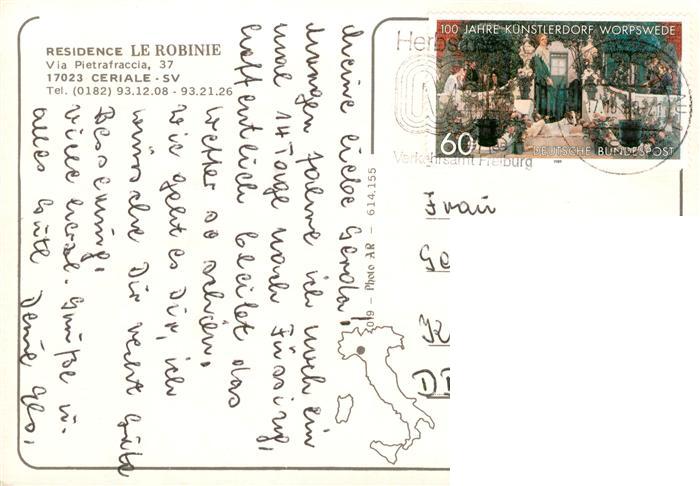 RESIDENCE LE ROBINIE
Via Pietrafraccia, 37
17023 CERIALE - SV
Tel. (0182) 93.12.08 - 93.21.26
Meine liebe Gerda!
Morgen fahre ich noch ein
mal 14 Tage nach Füssing,
hoffentlich bleibt das
Wetter so schön.
Wie geht es Dir, ich
wünsche Dir recht gute
Besserung.
Viele herzl. Grüße u.
alles Gute Deine
Photo AR - 614.155
100 JAHRE KÜNSTLERDORF WORPSWEDE
60
DEUTSCHE BUNDESPOST
1989
Verkehrsamt Freiburg
Frau
Ge
K
D